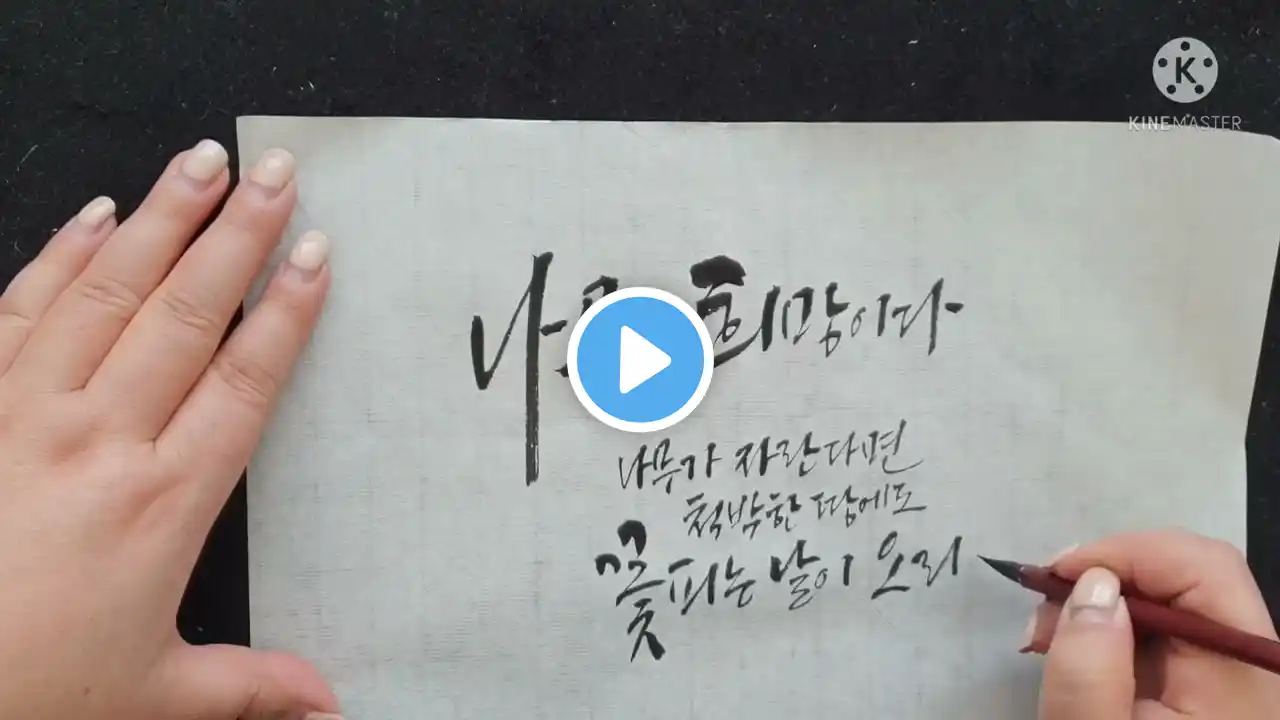 희망이다
나무가 자란다면
척박한 땅에도
꽃피는 날이 오리
KINEMASTER